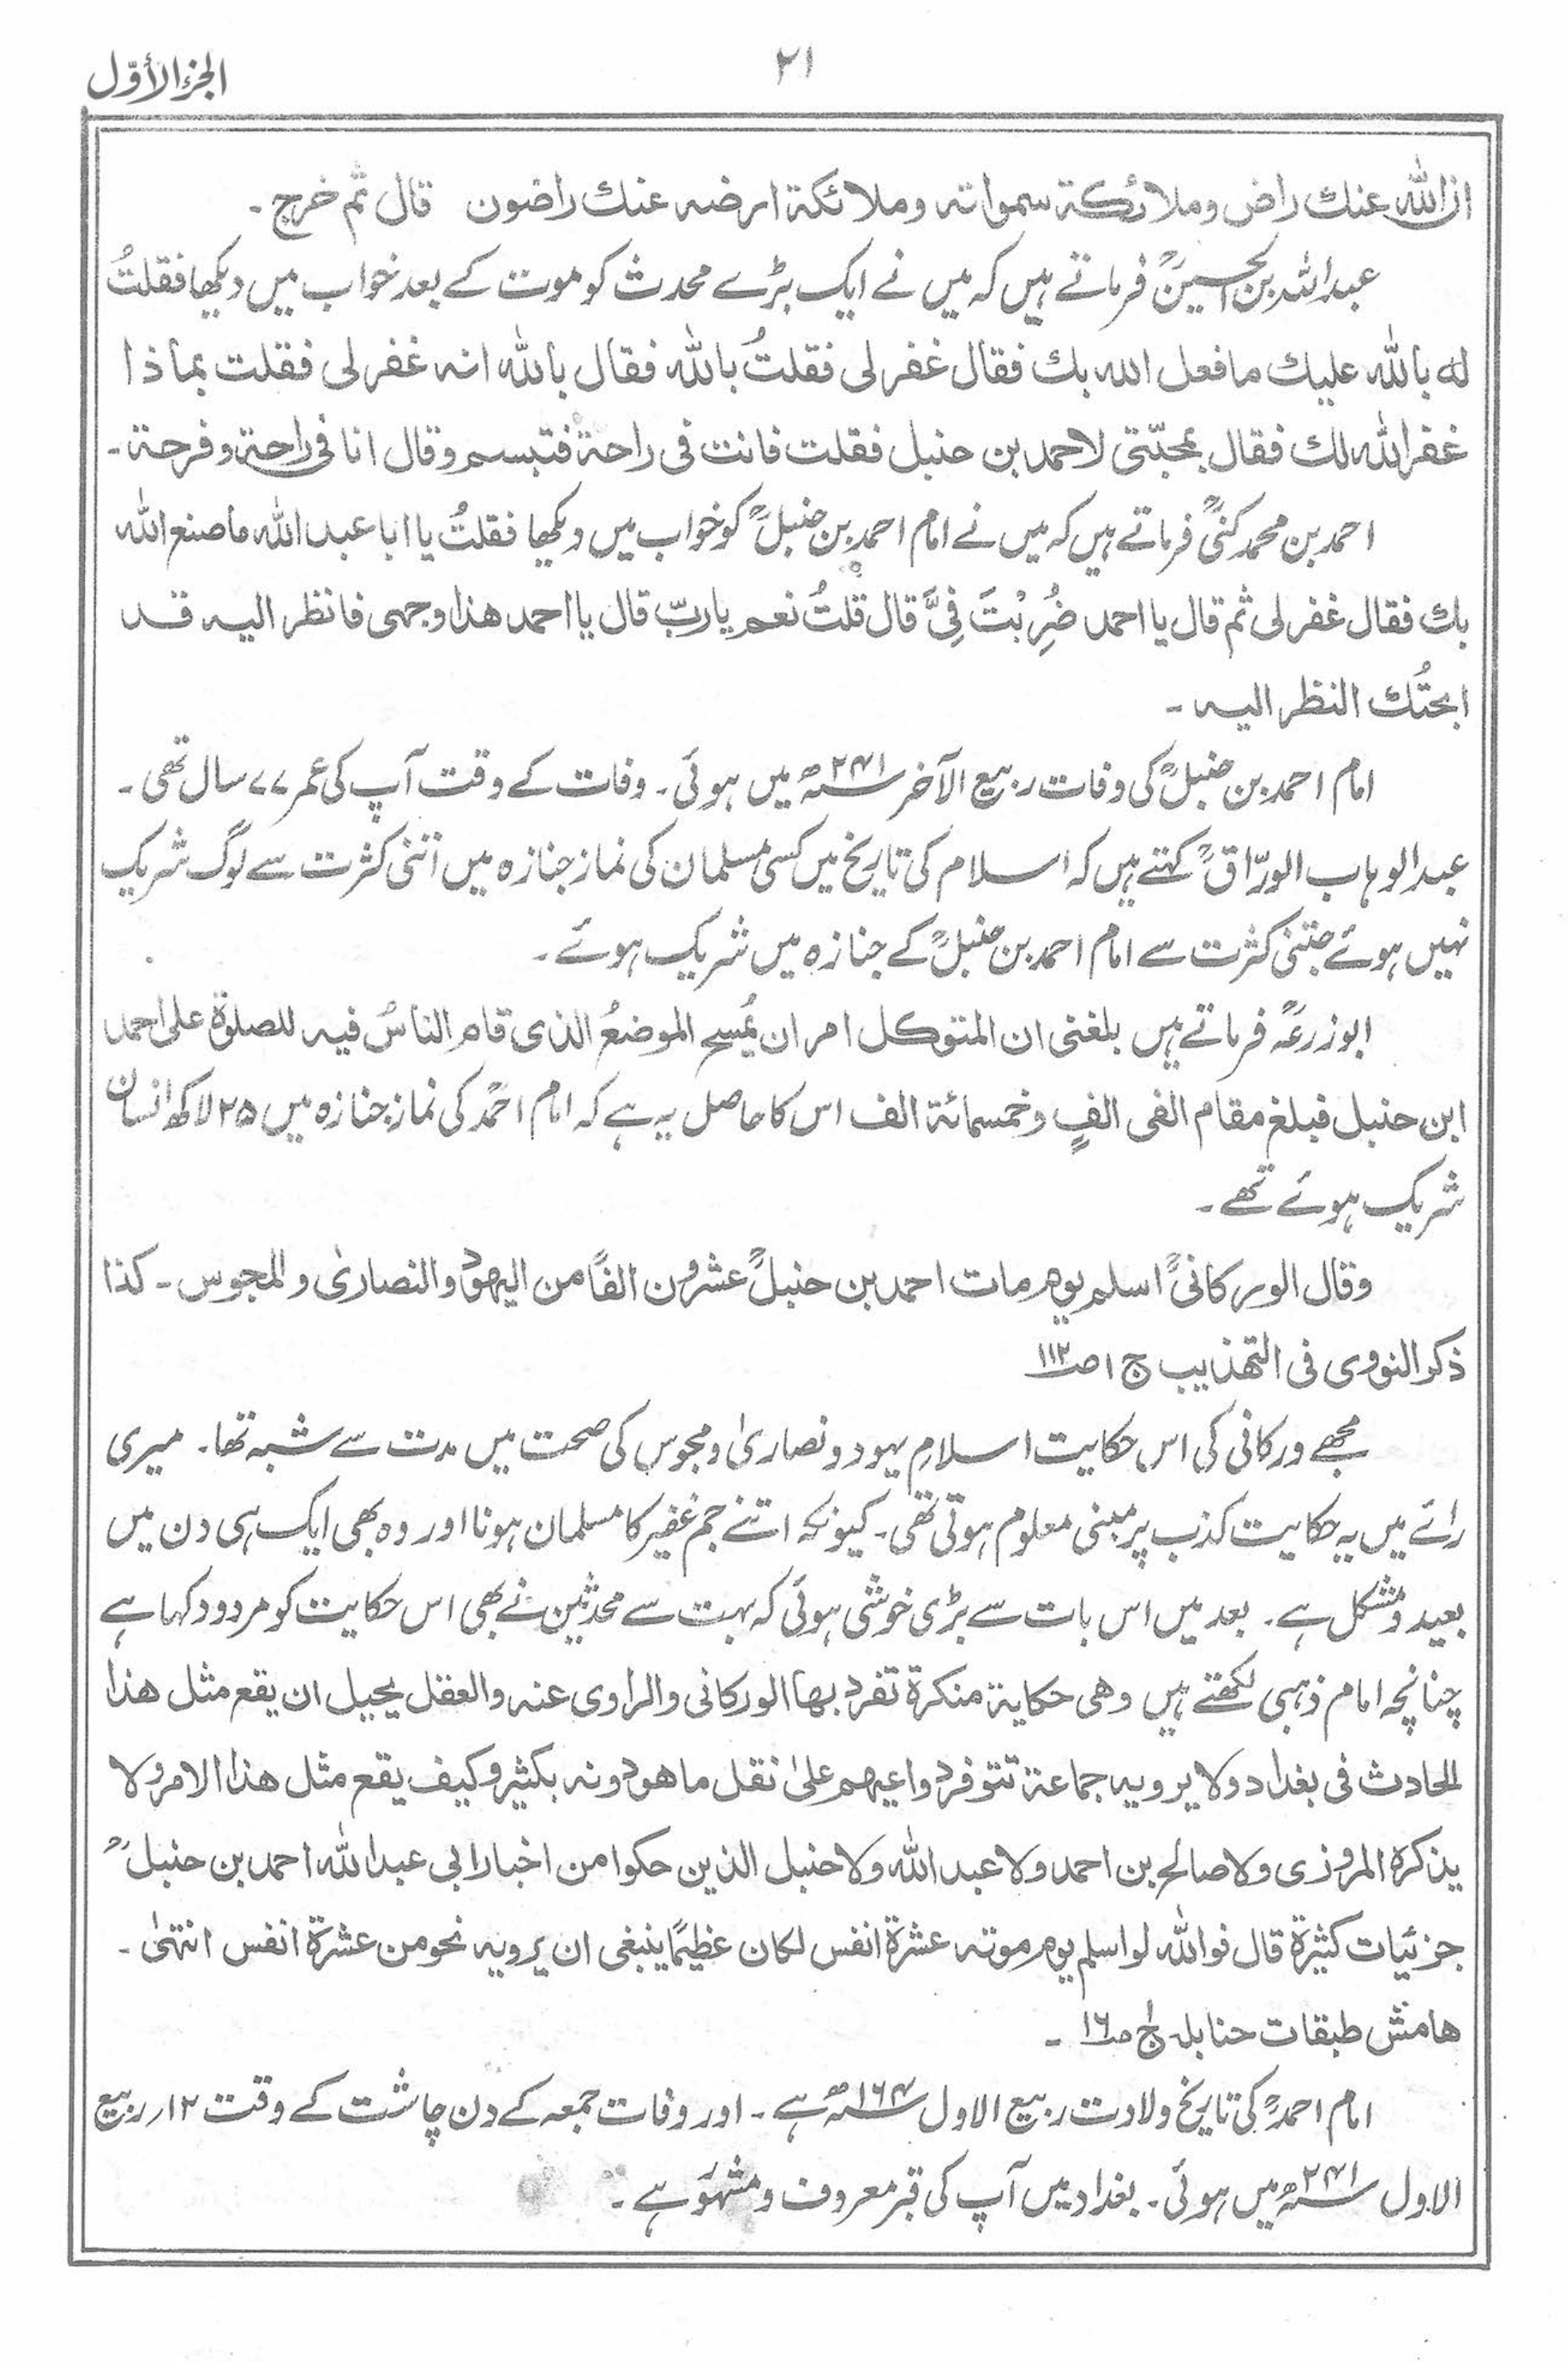 الجزء الأوّل
٢١
ان اللّٰه عنك راض وملائكة سمواته وملائكة ارضه عنك راضون قال ثم خرج ۔
عبداللہ بن الحسینؒ فرماتے ہیں کہ میں نے ایک بڑے محدث کو موت کے بعد خواب میں دیکھا فقلتُ
له باللّٰه عليك مافعل الله بك فقال غفر لی فقلتُ باللّٰه فقال باللّٰه انه غفر لی فقلت بماذا
غفر اللّٰه لك فقال بمحبّتی لاحمد بن حنبل فقلت فانت فی راحة فتبسم وقال انا فی راحة وفرحة ۔
احمد بن محمد کنؒی فرماتے ہیں کہ میں نے امام احمد بن حنبلؒ کو خواب میں دیکھا فقلتُ یا ابا عبد اللّٰه ماصنع اللّٰه
بك فقال غفر لی ثم قال یا احمد ضُرِبْتَ فِیَّ قال قلتُ نعم یاربّ قال یا احمد هذا وجهی فانظر الیه قد
ابحتُك النظر الیه ۔
امام احمد بن حنبلؒ کی وفات ربیع الآخر ۲۴۱ھ میں ہوئی ۔ وفات کے وقت آپ کی عمر ۷۷ سال تھی ۔
عبدالوہاب الورّاقؒ کہتے ہیں کہ اسلام کی تاریخ میں کسی مسلمان کی نماز جنازہ میں اتنی کثرت سے لوگ شریک
نہیں ہوئے جتنی کثرت سے امام احمد بن حنبلؒ کے جنازہ میں شریک ہوئے ۔
ابوزرعہؒ فرماتے ہیں بلغنی ان المتوکل امر ان یُمسح الموضعُ الذی قام الناسُ فیه للصلوٰة علی احمد
ابن حنبل فبلغ مقام الفی الفٍ وخمسمائة الف اس کا حاصل یہ ہے کہ امام احمدؒ کی نماز جنازہ میں ۲۵ لاکھ انسان
شریک ہوئے تھے ۔
وقال الورکانیؒ اسلم یوم مات احمد بن حنبلؒ عشرون الفًا من الیهود والنصاریٰ والمجوس ۔ کذا
ذکر النووی فی التهذیب ج ۱ ص۱۱۲
مجھے ورکانی کی اس حکایت اسلامِ یہود ونصاریٰ ومجوس کی صحت میں مدت سے شبہ تھا ۔ میری
رائے میں یہ حکایت کذب پر مبنی معلوم ہوتی تھی ۔ کیونکہ اتنے جم غفیر کا مسلمان ہونا اور وہ بھی ایک ہی دن میں
بعید ومشکل ہے ۔ بعد میں اس بات سے بڑی خوشی ہوئی کہ بہت سے محدثین نے بھی اس حکایت کو مردود کہا ہے
چنانچہ امام ذہبی لکھتے ہیں وهی حکایة منکرة تفرد بها الورکانی والراوی عنه والعقل یحیل ان یقع مثل هذا
الحادث فی بغداد ولا یرویه جماعة تتوفر دواعیهم علیٰ نقل ماهو دونه بکثیر وکیف یقع مثل هذا الامر ولا
یذکره المروزی ولا صالح بن احمد ولا عبد اللّٰه ولا حنبل الذین حکوا من اخبار ابی عبد اللّٰه احمد بن حنبلؒ
جزئیات کثیرة قال فواللّٰه لو اسلم یوم موته عشرة انفس لکان عظیمًا ینبغی ان یرویه نحو من عشرة انفس انتهیٰ ۔
هامش طبقات حنابله ج۱ ص۱۶ ۔
امام احمدؒ کی تاریخ ولادت ربیع الاول ۱۶۴ھ ہے ۔ اور وفات جمعہ کے دن چاشت کے وقت ۱۲ ربیع
الاول ۲۴۱ھ میں ہوئی ۔ بغداد میں آپ کی قبر معروف ومشہور ہے ۔